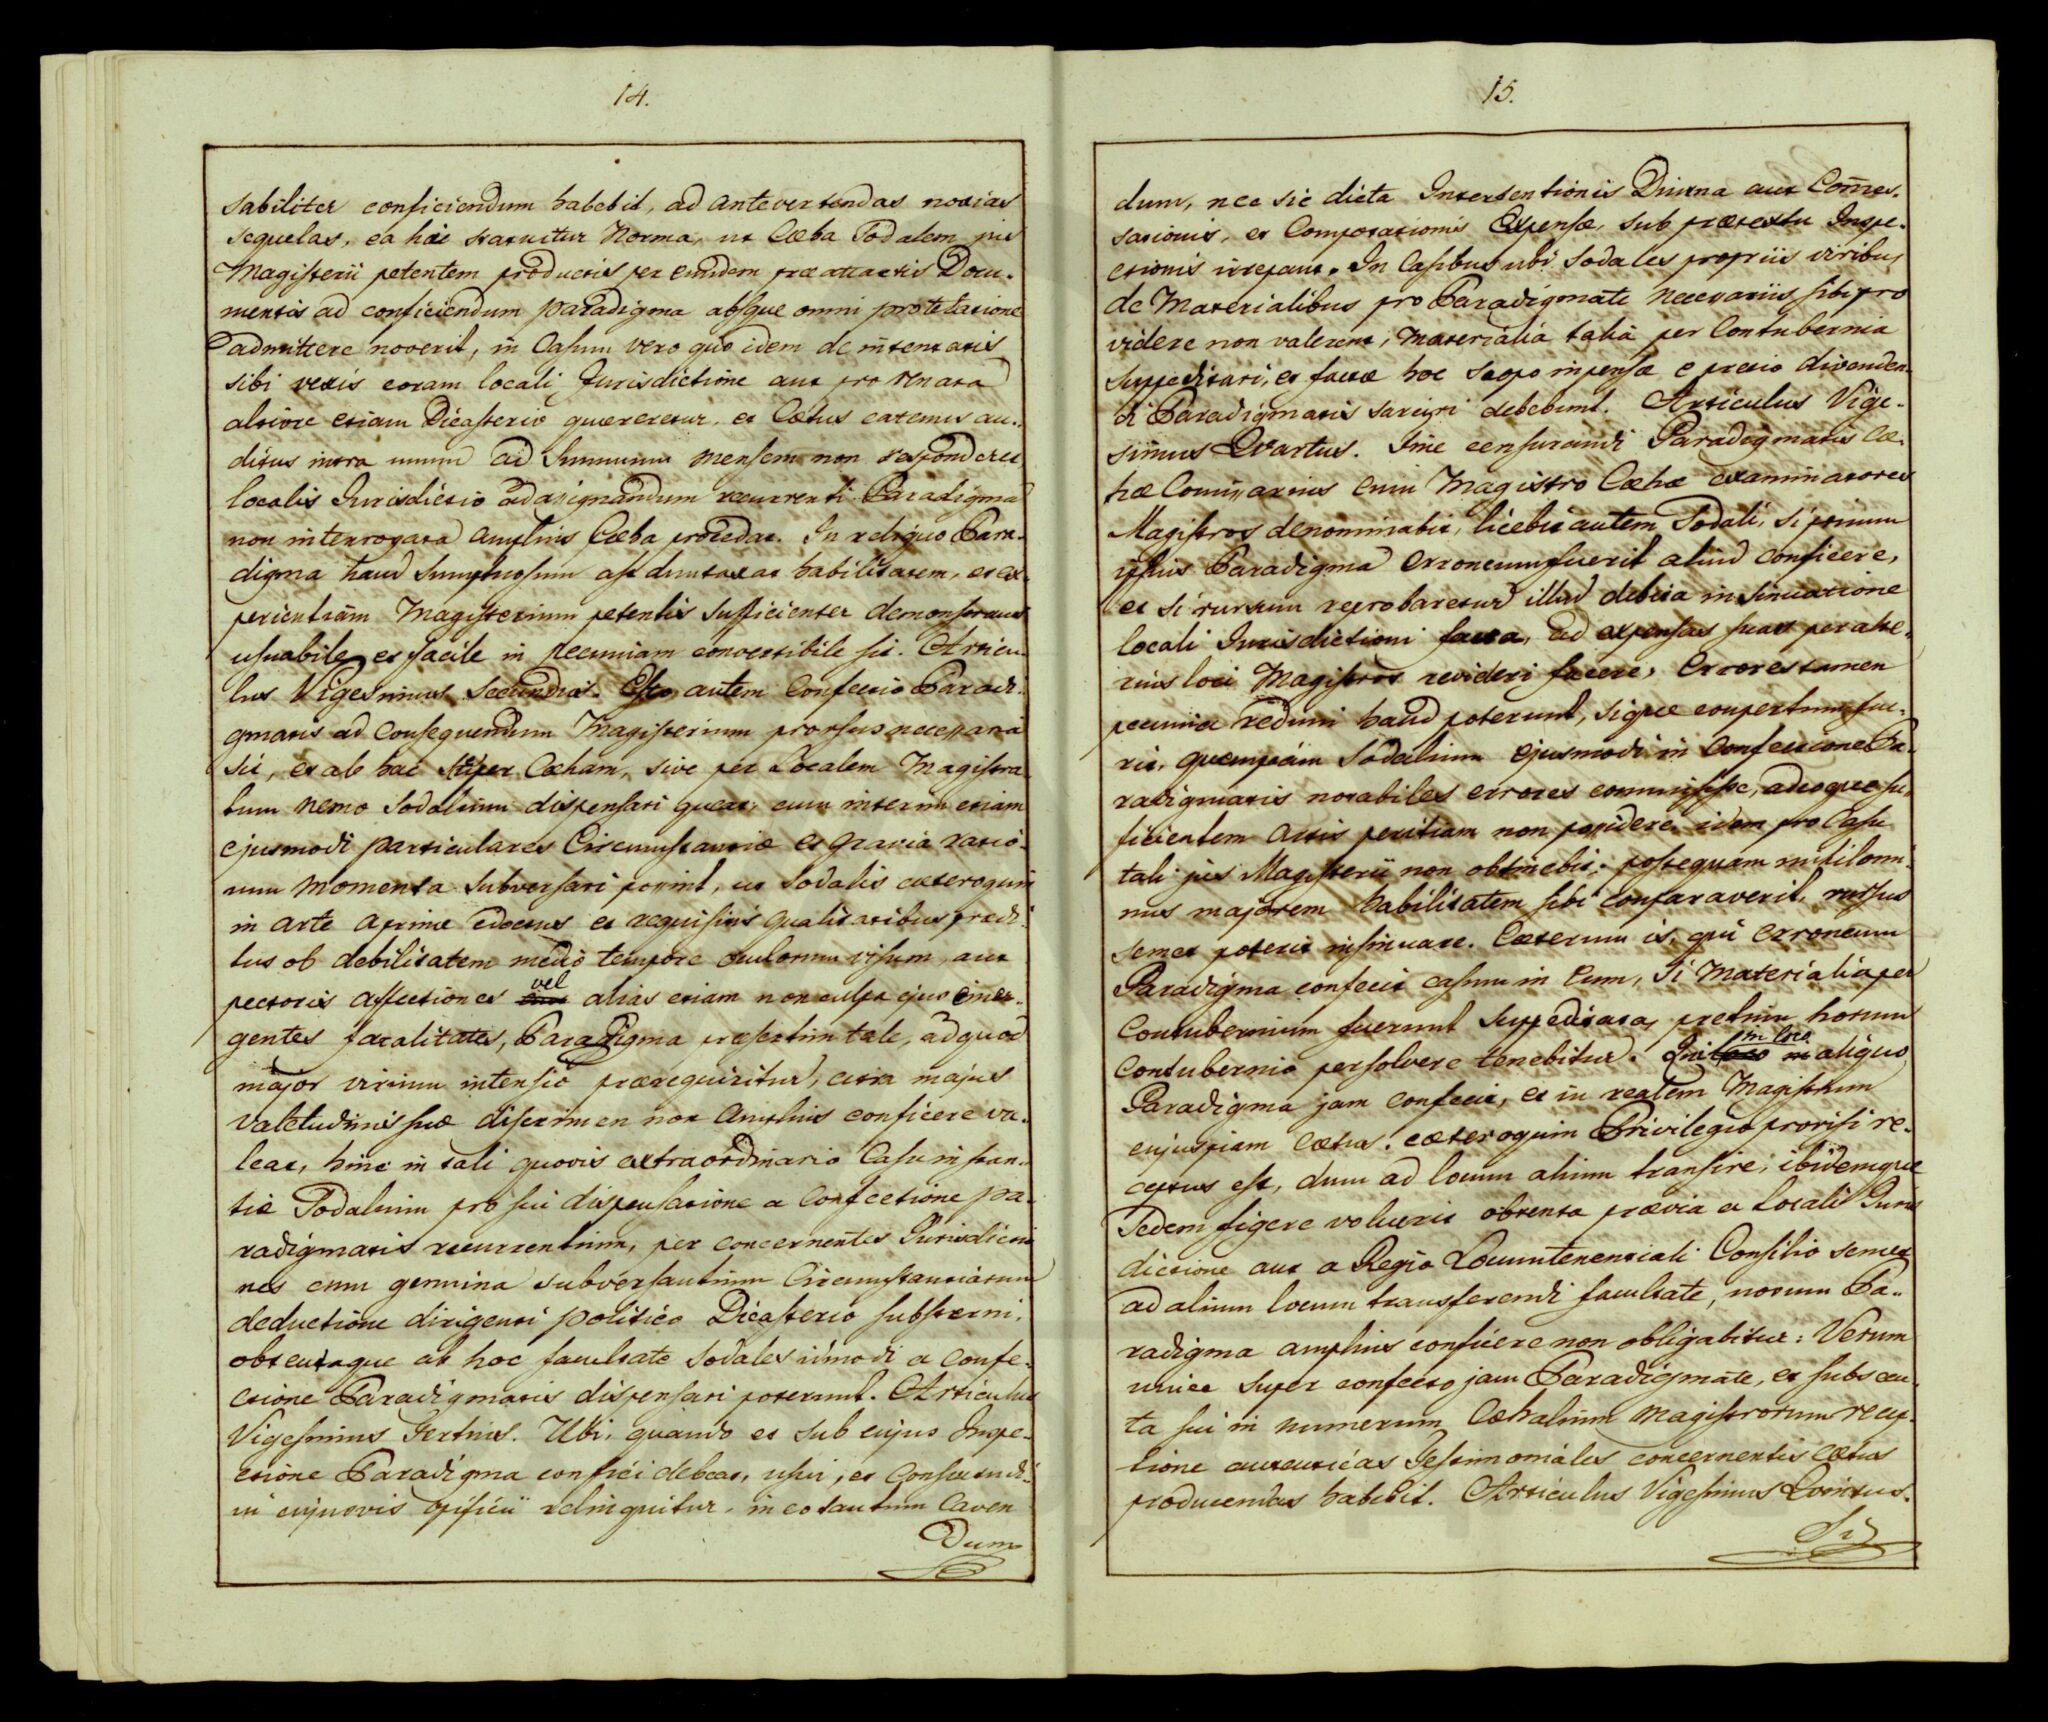 14.
sabiliter conficiendum habebit, ad antevertendas noxias
sequelas, ea hic statuitur Norma, ut Cæha Sodalem jus
Magisterii petentem productis per eundem præattactis Docu-
mentis ad conficiendum Paradigma absque omni protelatione
admittere noverit, in Casum vero quo idem de intentatis
sibi vexis coram locali Jurisdictione aut pro re nata
altiore etiam Dicasterio quereretur, et Cætus eatenus au-
ditus intra unum ad summum mensem non responderet
localis Jurisdictio ad assignandum recurrenti Paradigma
non interrogata amplius Cæha procedat. In reliquo Para-
digma haud sumptuosum ast duntaxat habilitatem, et ex-
perientiam Magisterium petentis sufficienter demonstrans
usuabile et facile in pecuniam convertibile sit. Articu-
lus Vigesimus Secundus. Esto autem Confectio Paradi-
gmatis ad consequendum Magisterium prorsus necessaria
sit, et ab hac super Cæham, sive per Localem Magistra-
tum nemo Sodalium dispensari queat, cum interim etiam
ejusmodi particulares Circumstantiæ et gravia ratio-
num momenta subversari possint, ut Sodalis cæteroquin
in arte aprime edoctus et requisitis qualitatibus prædi-
tus ob debilitatem medio tempore oculorum visum, aut
pectoris affectiones vel alias etiam non culpa ejus emer-
gentes fatalitates, Paradigma præsertim tale, ad quod
major virium intensio prærequiritur, citra majus
valetudinis suæ discrimen non amplius conficere va-
leat, hinc in tali quovis extraordinario Casu instan-
tiæ Sodalium pro sui dispensatione a Confectione Pa-
radigmatis recurrentium, per concernentes Jurisdictio
nes cum genuina subversantium Circumstantiarum
deductione dirigenti politico Dicasterio substerni,
obtentaque ab hoc facultate Sodales ismodi a Confe-
ctione Paradigmatis dispensari poterunt. Articulus
Vigesimus Tertius. Ubi, quando et sub cujus Inspe-
ctione Paradigma confici debeat, usui, et Consvetudi-
ni cujusvis opificii relinquitur, in eo tantum Caven
Dum
15.
dum, nec sic dicta Intertentionis Diurna aut Com̄es-
sationis, et Compotationis Expensæ, sub prætextu Inspe-
ctionis irrepant. In Casibus ubi Sodales propriis viribus
de Materialibus pro Paradigmate necessariis sibi pro
videre non valerent, Materialia talia per Contubernia
suppeditari, et factæ hoc scopo inpensæ e pretio divenden-
di Paradigmatis sarciri debebunt. Articulus Vige-
simus Quartus. Fine censurandi Paradigmatis Cæ-
hæ Commissarius cum Magistro Cæhæ examinatores
Magistros denominabit, licebit autem Sodali, si primum
ipsius Paradigma erroneum fuerit aliud conficere,
et si rursum reprobaretur illud debita insinuatione
locali Jurisdictioni facta, ad expensas suas per alte-
rius loci Magistros revideri facere; Errores tamen
pecunia redimi haud poterunt, sique compertum fue-
rit, quempiam Sodalium ejusmodi in Confectione Pa-
radigmatis notabiles errores commisisse, adeoque su-
ficientem artis peritiam non possidere idem pro Casu
tali jus Magisterii non obtinebit; postequam nihilomi-
nus majorem habilitatem sibi comparaverit, rursus
semet poterit insinuare. Cæterum is, qui erroneum
Paradigma confecit casum in eum, si Materialia per
Contubernium fuerunt suppeditata, pretium horum
Contubernio persolvere tenebitur. Qui in loco aliquo
Paradigma jam confecit, et in realem Magistrum
cujuspiam Cætus, cæteroquin Privilegio provisi re-
ceptus est, dum ad locum alium transire, ibidemque
Sedem figere voluerit obtenta prævia a Locali Juris
dictione aut a Regio Locumtenentiali Consilio semet
ad alium locum transferendi facultate, novum Pa-
radigma amplius conficere non obligabitur: Verum
unice super confecto jam Paradigmate, et subsecu-
ta sui in numerum Cæhalium Magistrorum recep-
tione autenticas Testimoniales concernentis Cætus
producendas habebit. Articulus Vigesimus Quintus.
Si